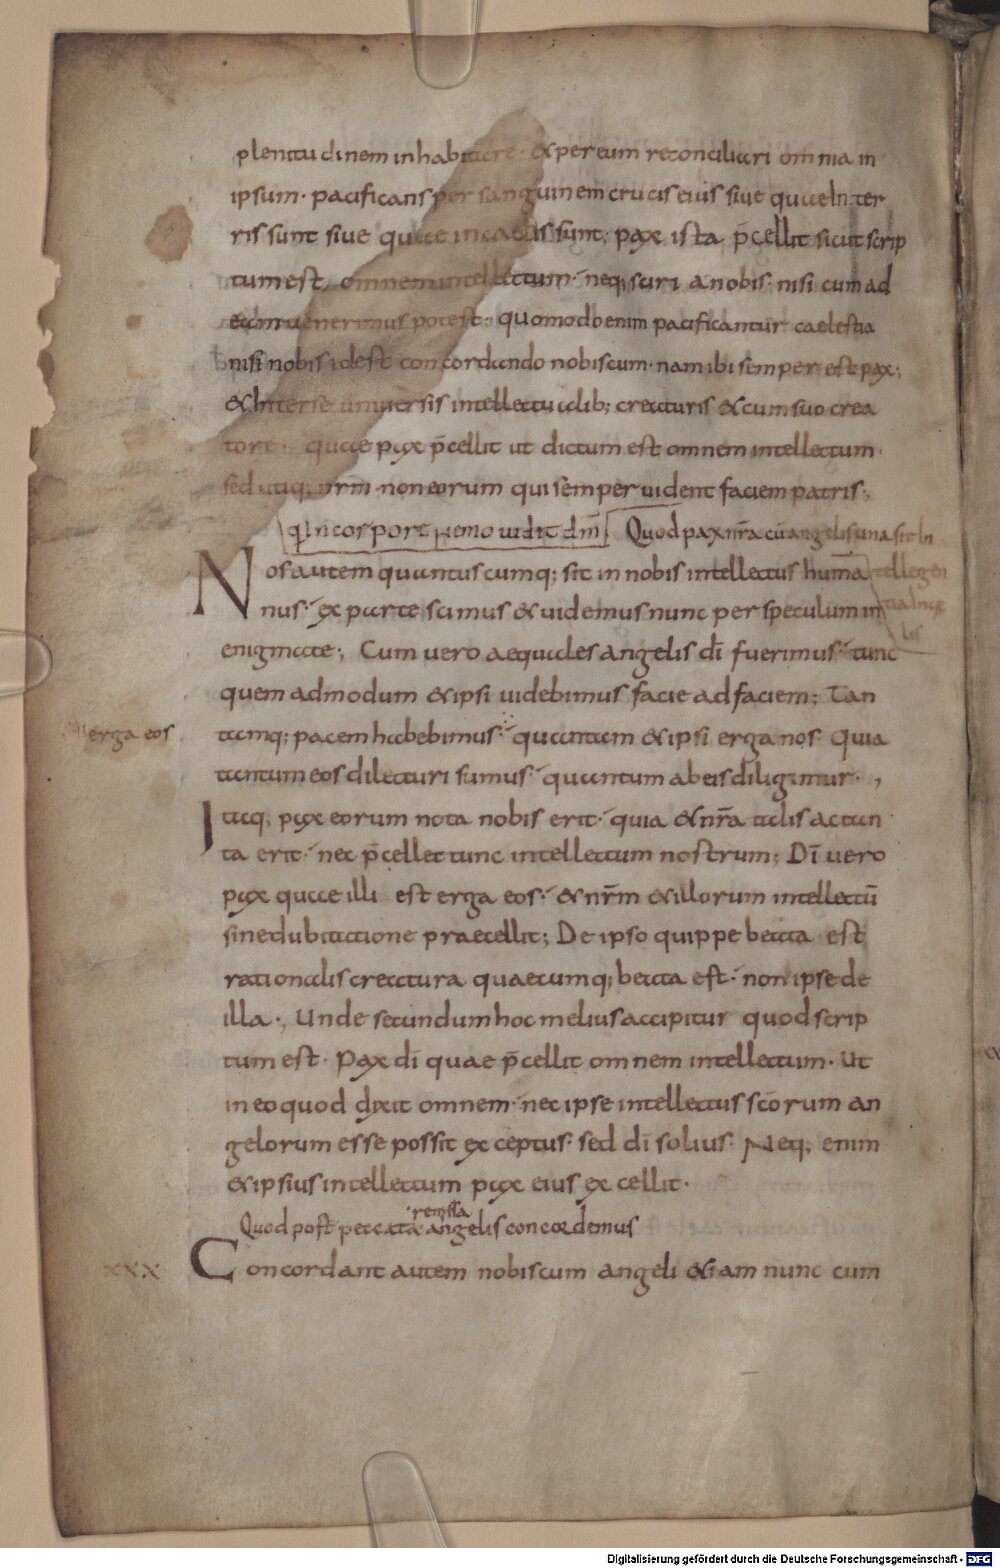 plenitudinem inhabitare · & per eum reconciliari omnia in
ipsum · pacificans per sanguinem crucis eius sive quae in ter
ris sunt sive quae in caelis sunt; pax ista p̄cellit sicut scrip
tum est, omnem intellectum · neq; sciri a nobis · nisi cum ad
eam venerimus potest; quomodo enim pacificantur caelestia
nisi nobis id est concordando nobiscum · nam ibi semper est pax;
& inter se universis intellectualib; creaturis & cum suo crea
tore · quae pax p̄cellit ut dictum est omnem intellectum ·
sed utiq; nr̄m · non eorum qui semper vident faciem patris;
Quod pax nr̄a cū angelis una sit in
tellegen
Nos autem quantuscumq; sit in nobis intellectus humā
nus · ex parte scimus & videmus nunc per speculum in
enigmate; Cum vero aequales angelis dī fuerimus · tunc
quem admodum & ipsi videbimus facie ad faciem; Tan
tamq; pacem habebimus · quantam & ipsi erga nos · Quia
erga eos
tantum eos dilecturi sumus · quantum ab eis diligimur ·,
Itaq; pax eorum nota nobis erit · quia & nr̄a talis ac tan
ta erit · nec p̄cellet tunc intellectum nostrum; Dī vero
pax quae illi est erga eos · & nr̄m & illorum intellectū
sine dubitatione praecellit; De ipso quippe beata est
rationalis creatura quaecumq; beata est · non ipse de
illa ·, Unde secundum hoc melius accipitur quod scrip
tum est · Pax dī quae p̄cellit omnem intellectum · Ut
in eo quod dixit omnem · nec ipse intellectus scōrum an
gelorum esse possit exceptus · sed dī solius · Neq; enim
& ipsius intellectum pax eius excellit ·
remissa
Quod post peccata angelis concordemus
xxx
Concordant autem nobiscum angeli &iam nunc cum
Digitalisierung gefördert durch die Deutsche Forschungsgemeinschaft - DFG